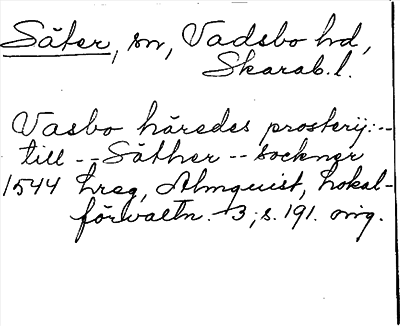 Säter, sn, Vadsbo hd,
Skarab. l.
Vasbo häredes prosterij: --
till -- Säther -- sockner
1544 hreg, Almquist, Lokal-
förvaltn. 3, s. 191. orig.